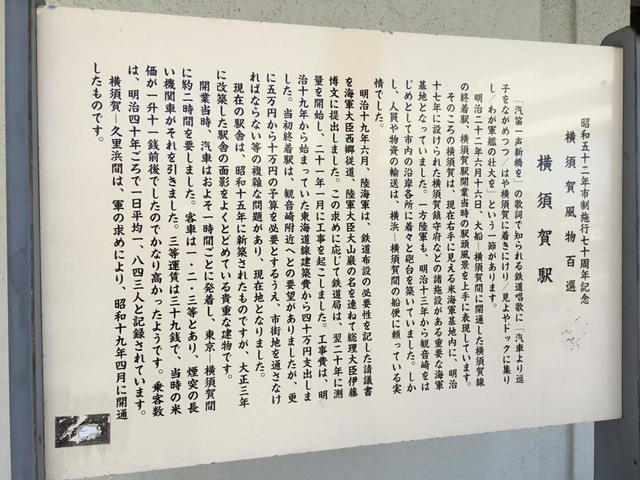 昭和五十二年市制施行七十周年記念
横須賀風物百選
横須賀駅
「汽笛一声新橋を」の歌詞で知られる鉄道唱歌に「汽車より逗
子をながめつつ/はや横須賀に着きにけり/見よやドックに集り
し/わが軍艦の壮大を」という一節があります。
明治二十二年六月十六日、大船―横須賀間に開通した横須賀線
の終着駅、横須賀駅開業当時の駅頭風景を上手に表現しています。
そのころの横須賀は、現在右手に見える米海軍基地内に、明治
十七年に設けられた横須賀鎮守府などの諸施設がある重要な海軍
基地となっていました。一方陸軍も、明治十三年から観音崎をは
じめとして市内の沿岸各所に着々と砲台を築いていました。しか
し、人員や物資の輸送は、横浜―横須賀間の船便に頼っている実
情でした。
明治十九年六月、陸海軍は、鉄道布設の必要性を記した請議書
を海軍大臣西郷従道、陸軍大臣大山巌の名を連ねて総理大臣伊藤
博文に提出しました。この求めに応じて鉄道局は、翌二十年に測
量を開始し、二十一年一月に工事を起こしました。工事費は、明
治十九年から始まっていた東海道線建築費から四十万円支出しま
した。当初終着駅は、観音崎附近へとの要望がありましたが、更
に五万円から十万円の予算を必要とするうえ、市街地を通さなけ
ればならない等の複雑な問題があり、現在地となりました。
現在の駅舎は、昭和十五年に新築されたものですが、大正三年
に改築した駅舎の面影をよくとどめている貴重な建物です。
開業当時、汽車はおよそ一時間ごとに発着し、東京―横須賀間
に約二時間を要しました。客車は一・二・三等とあり、煙突の長
い機関車がそれを引きました。三等運賃は三十九銭で、当時の米
価が一升十一銭前後でしたのでかなり高かったようです。乗客数
は、明治四十年ごろで一日平均一、八四三人と記録されています。
横須賀―久里浜間は、軍の求めにより、昭和十九年四月に開通
したものです。